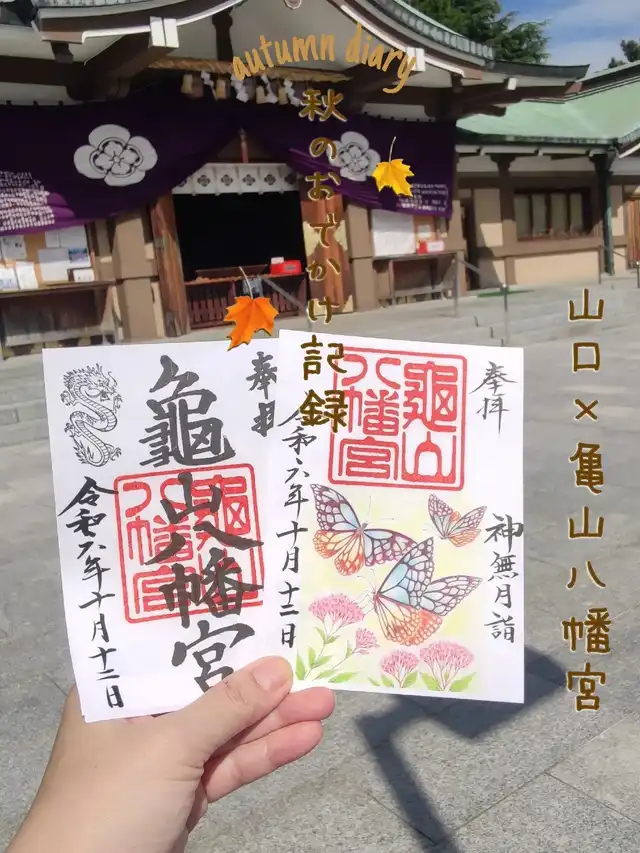 autumn diary
秋のおでかけ記録
山口×亀山八幡宮
奉拝
龜山八幡宮
令和六年十月十二日
龜山
八幡宮
奉拝
龜山
八幡宮
神無月詣
令和六年十月十二日